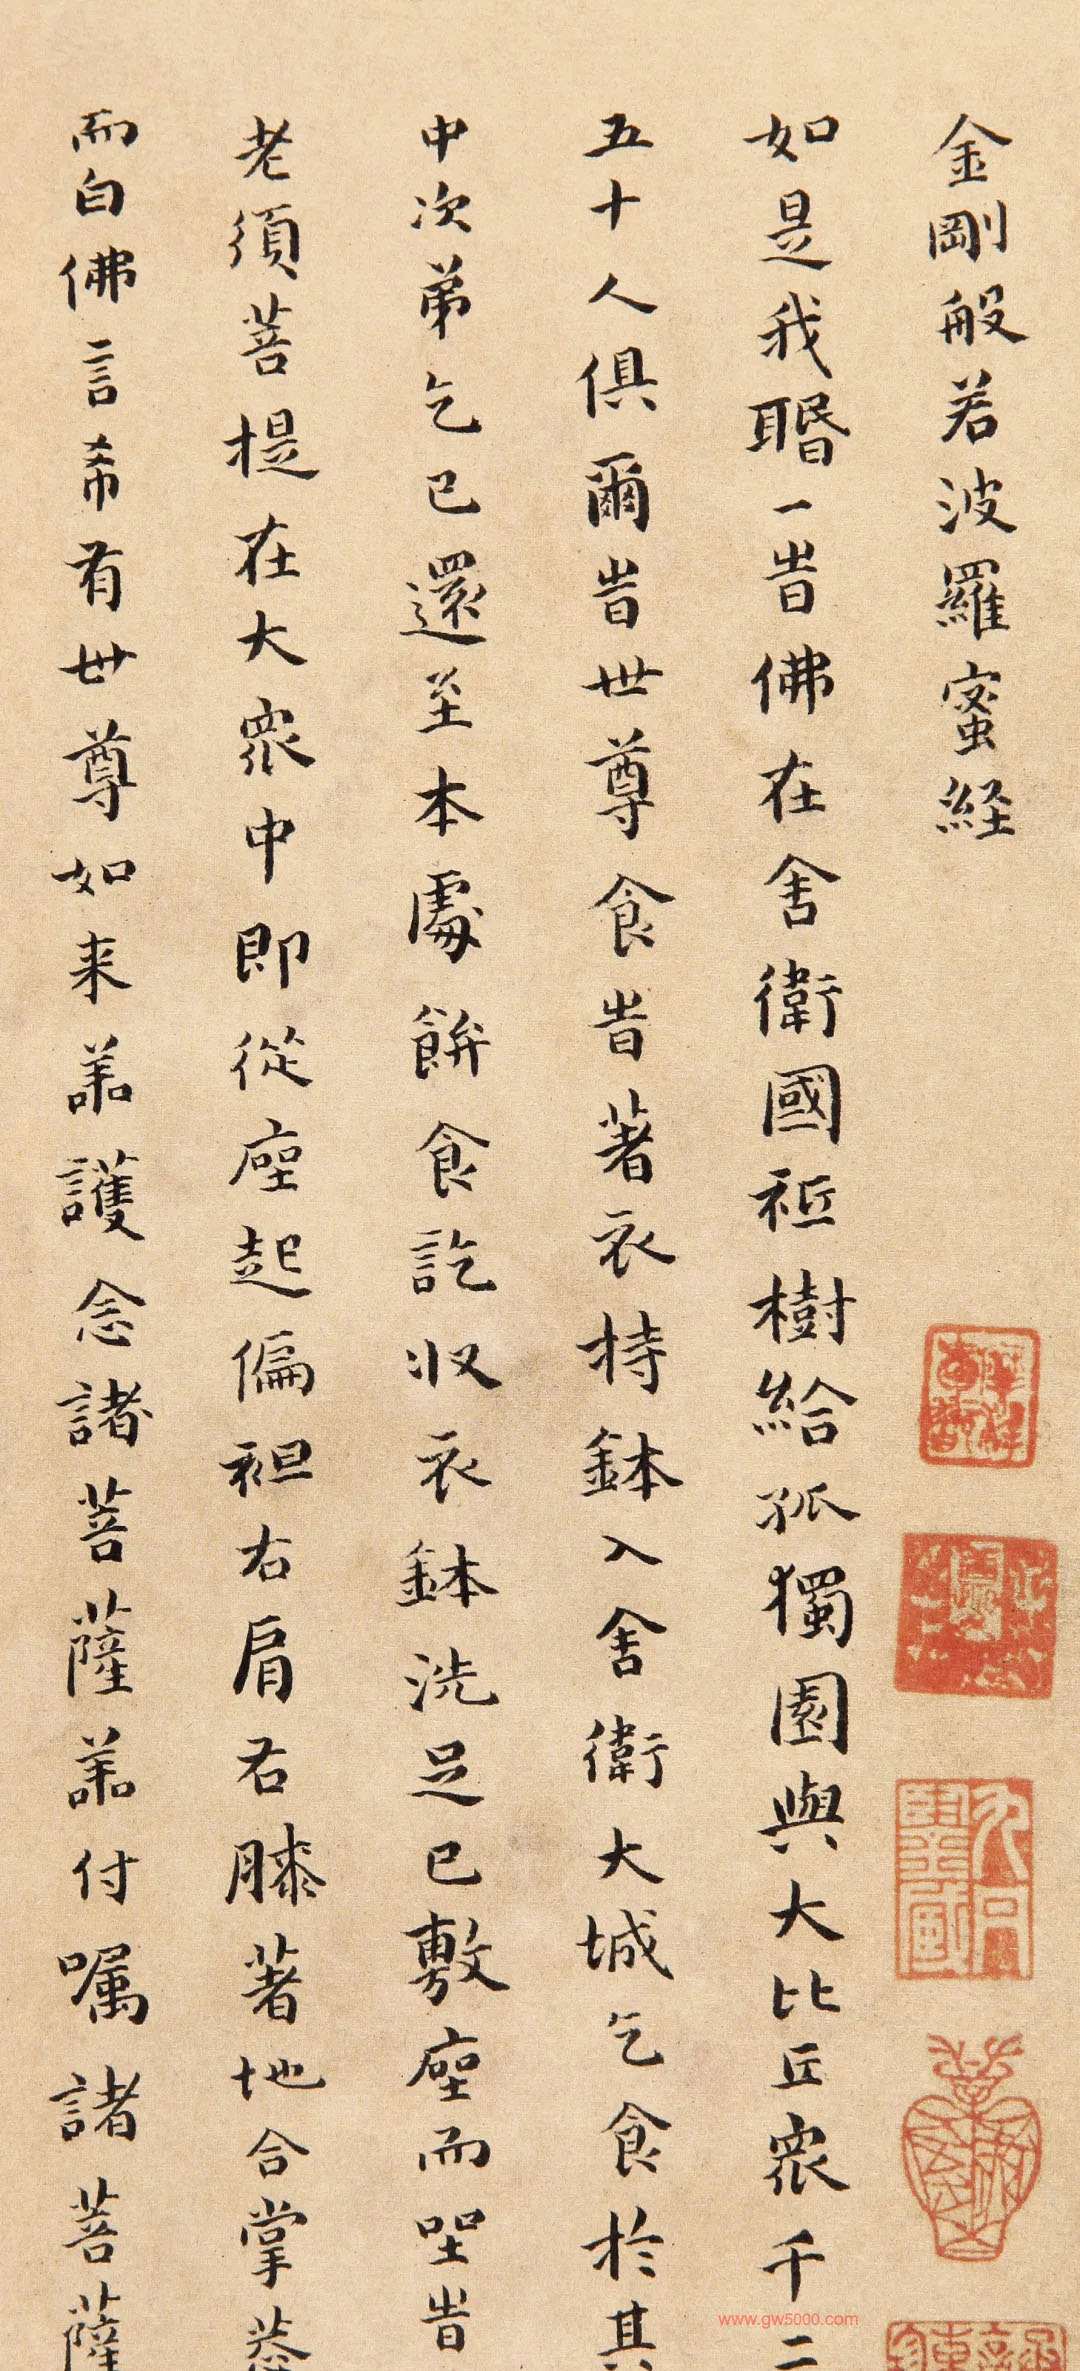 金剛般若波羅蜜経
如是我聞一旹佛在舍衛國祗樹給孤獨園與大比丘衆千二
五十人俱爾旹世尊食旹著衣持鉢入舍衛大城乞食於其
中次第乞已還至本處飰食訖收衣鉢洗足已敷座而坐旹
老須菩提在大衆中即從座起偏袒右肩右膝著地合掌恭
而白佛言希有世尊如来善護念諸菩薩善付嘱諸菩薩
www.gw5000.com